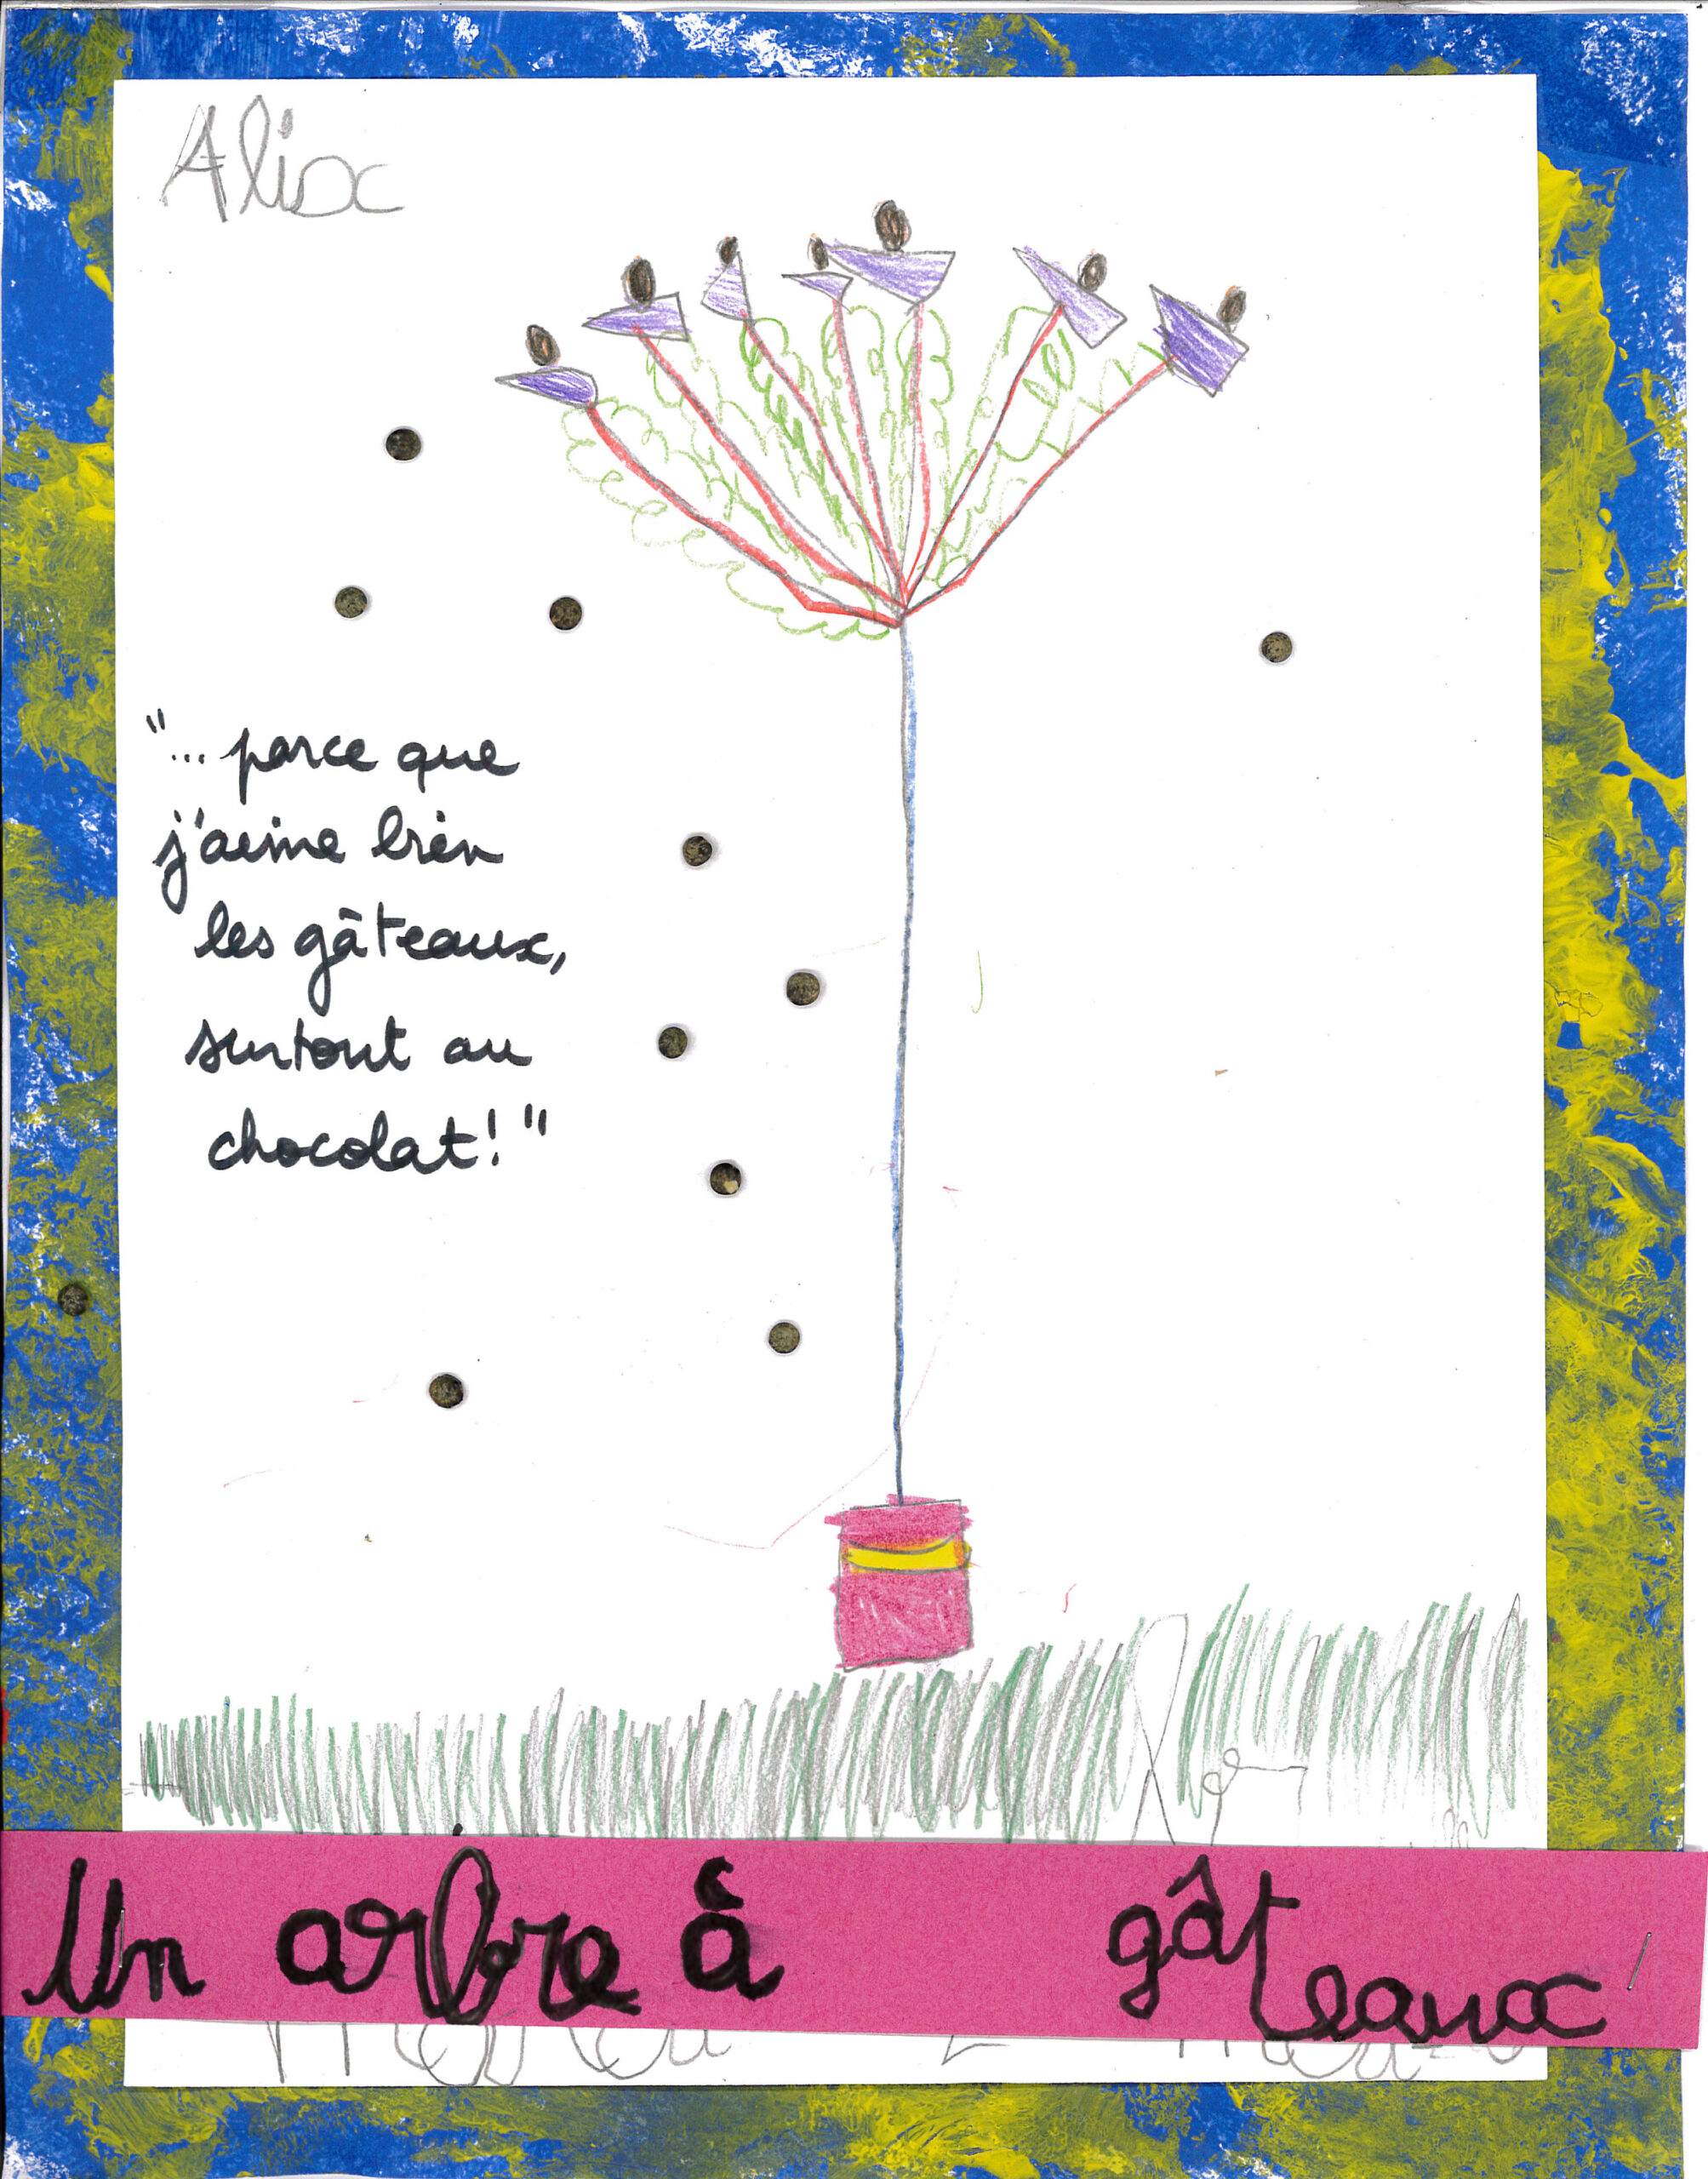 Alix
"... parce que
j'aime bien
les gâteaux,
surtout au
chocolat!"
Un arbre à gâteaux